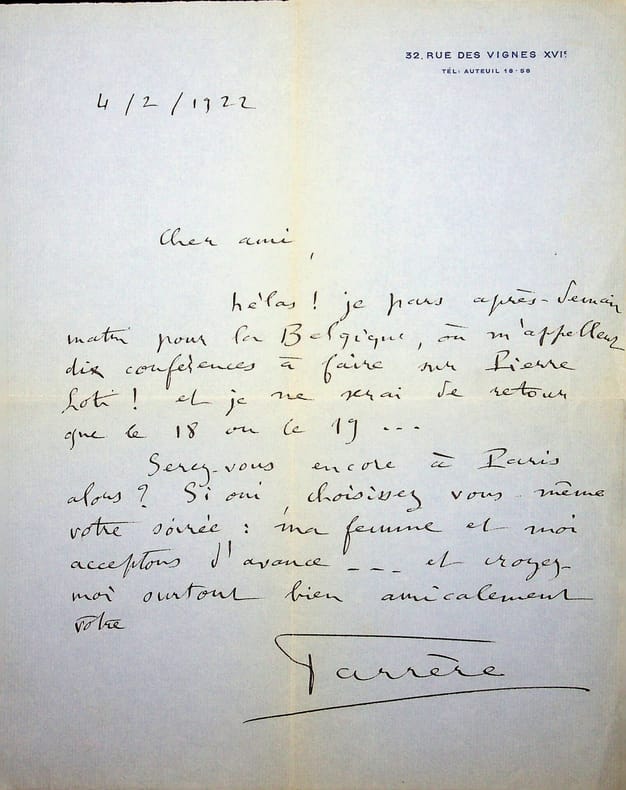 32, RUE DES VIGNES XVIᵉ
TÉL: AUTEUIL 18-58
4/2/1922
Cher ami,
hélas ! je pars après-demain
matin pour la Belgique, où m'appellent
dix conférences à faire sur Pierre
Loti ! et je ne serai de retour
que le 18 ou le 19 ...
Serez-vous encore à Paris
alors ? Si oui, choisissez vous-même
votre soirée : ma femme et moi
acceptons d'avance ... et croyez-
moi surtout bien amicalement
vôtre
Farrère